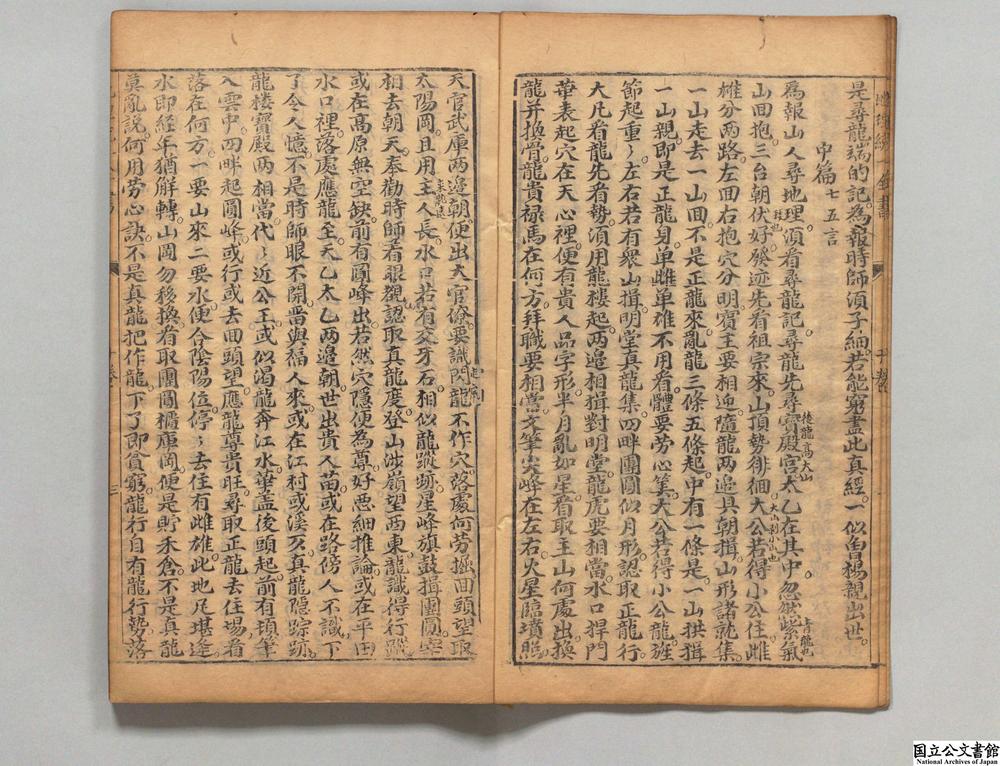 是尋龍端的記為報時師須子細若能窮盡此真經一似曾楊親出世
中篇七五言
為報山人尋地理須看尋龍記尋龍先尋寶殿宮太乙在其中忽然紫氣
山回抱三台朝伏好發迹先看祖宗來山頂勢徘徊大公若得小公住雌
雄分兩路左回右抱穴分明賓主要相迎隨龍兩邊具朝揖山形諸就集
一山走去一山回不是正龍來亂龍三條五條起中有一條是一山拱揖
一山親即是正龍身单雌单雄不用看體要劳心筭大公若得小公龍旌
節起重〻左右若有眾山揖明堂真龍集四畔團圓似月形認取正龍行
大凡看龍先看勢須用龍樓起兩邊相揖對明堂龍虎要相當水口捍門
華表起穴在天心裡便有貴人品字形半月亂如星看取主山何處出換
龍并換骨龍貴禄馬在何方拜職要相當文筆尖峰在左右火星臨墳照
天官武庫兩邊朝便出大官僚要識閃龍不作穴落處何劳掘回頭望取
太陽岡且用主人長水口若有交牙石相似龍蹤跡星峰旗鼓揖團圓
相去朝天奉勸時師着眼觀認取真龍度登山涉嶺望西東龍識得行蹤
或在高原無空缺前有圓峰出若然穴隱便為尊好悪細推論或在平田
水口裡落處應龍至天乙太乙兩邊朝世出貴人苗或在路傍人不識下
了令人憶不是時師眼不開當與福人來或在江村或溪真龍隱踪跡
龍楼寶殿兩相當代〻近公王或似渴龍奔江水華盖後頭起前有頓筆
入雲中四畔起圓峰或行或去回頭望應龍尊貴旺尋取正龍去住場看
落在何方一要山來二要水便合陰陽位停〻去住有雌雄此地足堪逢
水即經年猶解轉山岡勿移換看取團圓櫃庫岡便是貯禾倉不是真龍
莫亂說何用劳心訣不是真龍把作龍下了即貧窮龍行自有龍行勢落
後龍高大山
青龍也
三
国立公文書館
National Archives of Japan